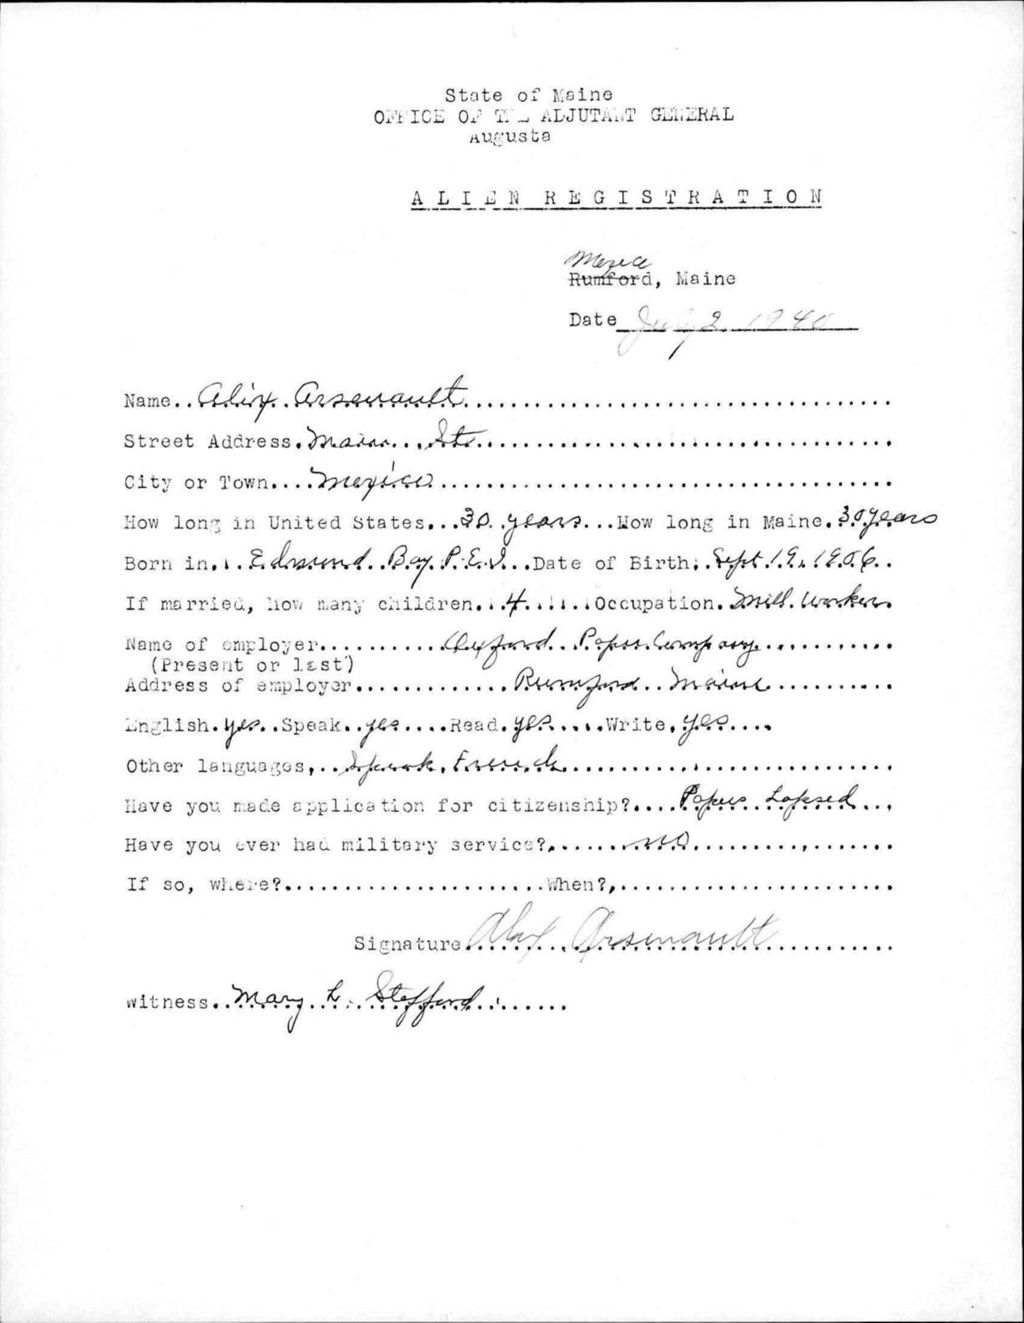 State of Maine
OFFICE OF THE ADJUTANT GENERAL
Augusta
ALIEN REGISTRATION
Mexico
Rumford, Maine
Date July 2, 1940
Name..Alix.Arsenault
Street Address.Main...St.
City or Town....Mexico
How long in United States...30.years...How long in Maine.30years
Born in...Edmund.Bay.P.E.I...Date of Birth..Sept.19.1906..
If married, how many children...4......Occupation.Mill.Worker.
Name of employer...........Oxford..Paper.Company............
(Present or last)
Address of employer.............Rumford..Maine...........
English.yes..Speak..yes....Read.yes.....Write.yes....
Other languages,..Speak.French
Have you made application for citizenship?....Paper..Lapsed...
Have you ever had military service?.......NO.............
If so, where?......................When?,......................
Signature Alex Arsenault
Witness..Mary.L..Stafford